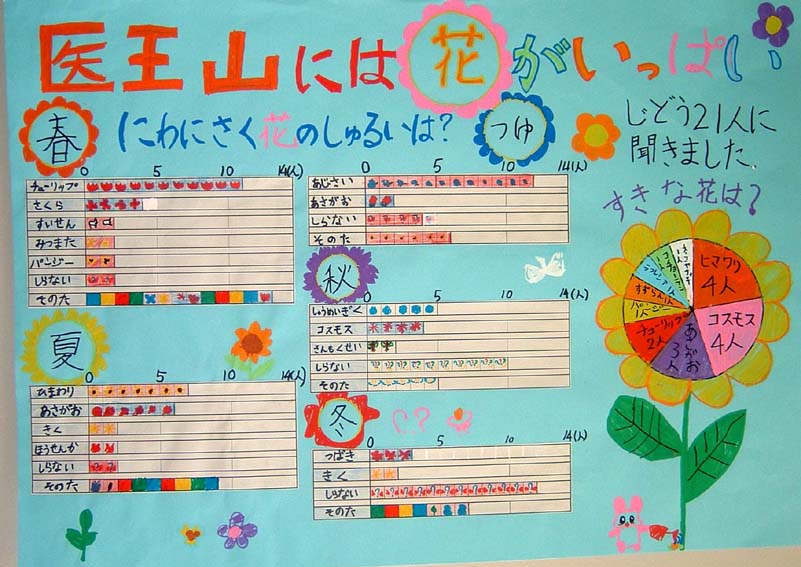 医王山には花がいっぱい
春
にわにさく花のしゅるいは?
つゆ
じどう21人に
聞きました
すきな花は?
0 5 10 14(人)
チューリップ
さくら
すいせん
みつまた
パンジー
しらない
そのた
0 5 10 14(人)
あじさい
あさがお
しらない
そのた
秋
0 5 10 14(人)
しゅうめいぎく
コスモス
きんもくせい
しらない
そのた
夏
0 5 10 14(人)
ひまわり
あさがお
きく
ほうせんか
しらない
そのた
冬
0 5 10 14(人)
つばき
きく
しらない
そのた
ヒマワリ
4人
コスモス
4人
あさがお
3人
チューリップ
2人
パンジー
1人
すずらん1人